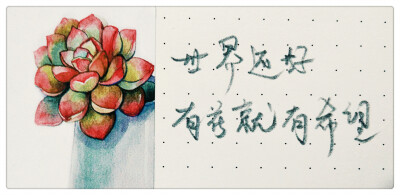 世界还好
有就有希望